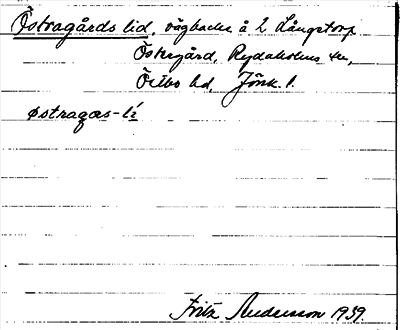 Östragårds lid, vägbacke å 2 Långstorp
Östergård, Rydaholms sn,
Östbo hd, Jönk. l.
østragas-li
Fritz Andersson 1939.